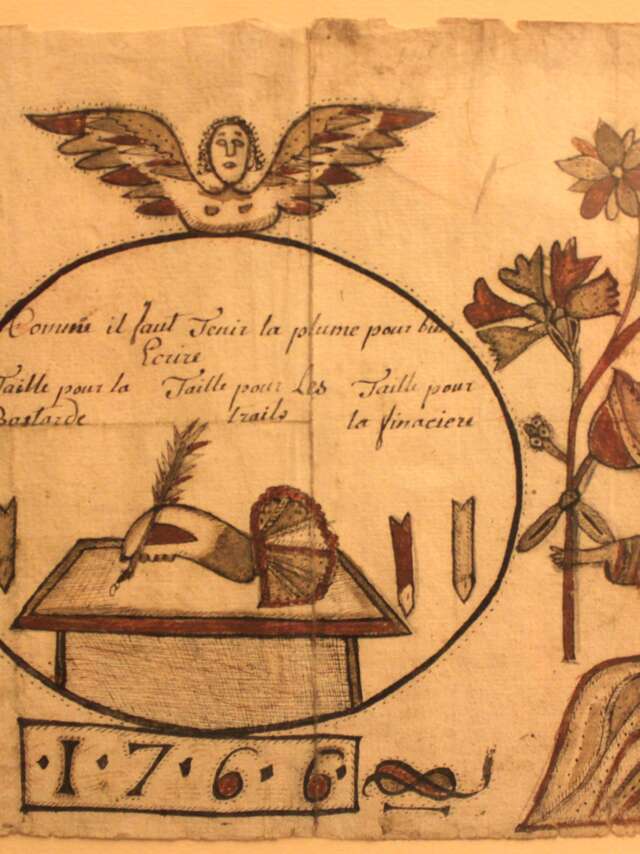 Comme il faut Tenir la plume pour bien
Ecrire
Taille pour la
Bastarde
Taille pour Les
traits
Taille pour
la finaciere
·1·7·6·6·